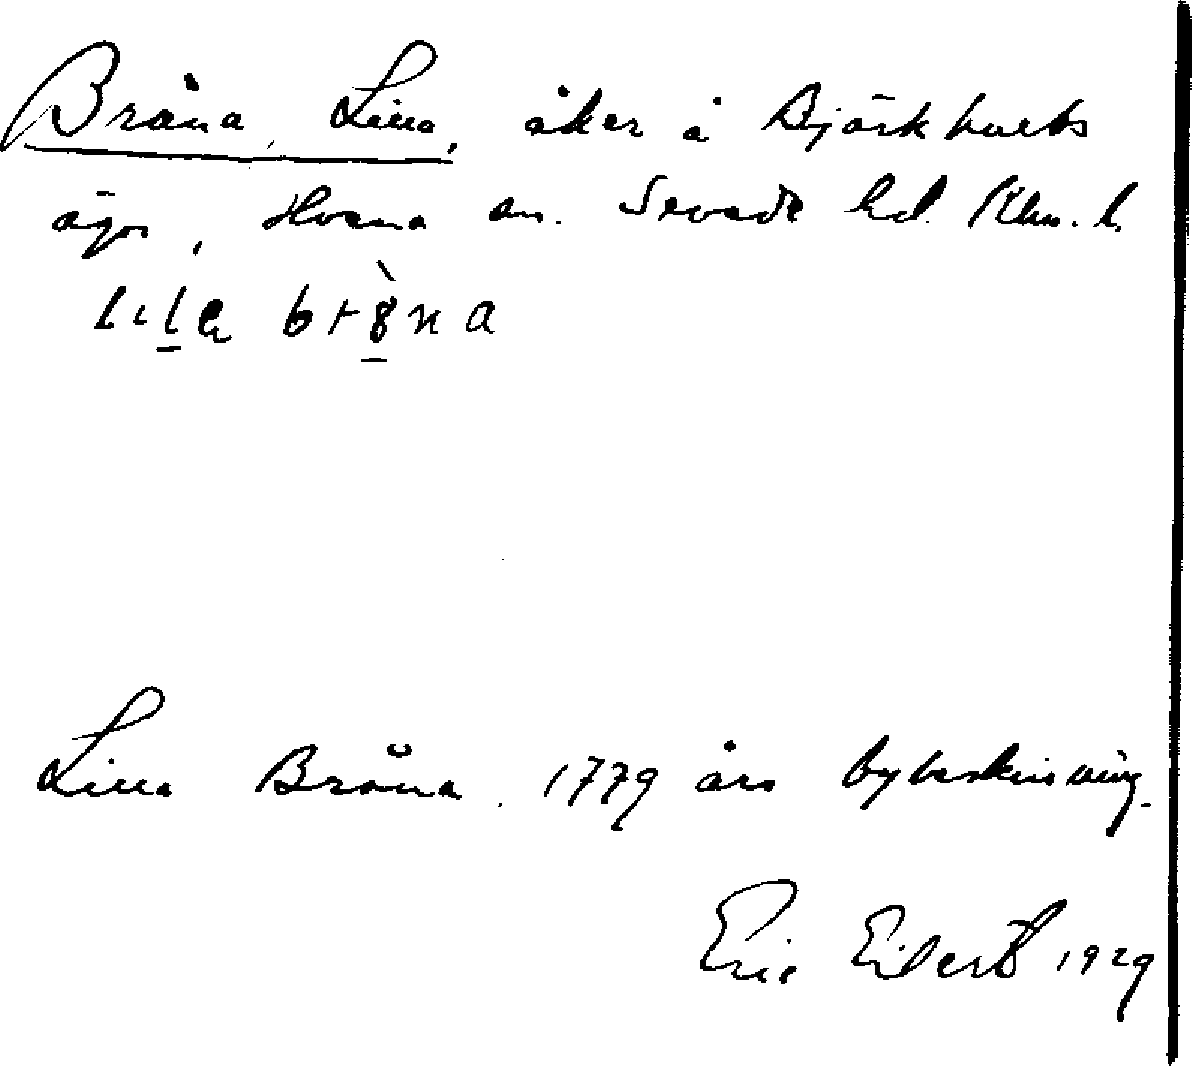 Bråna, Lilla, åker å Björkhults
ägor, Hvena sn. Sevede hd. Klm. l.
lila brȣ̀na
Lilla Bråna. 1779 års bybeskrivning.
Eric Eilert 1929